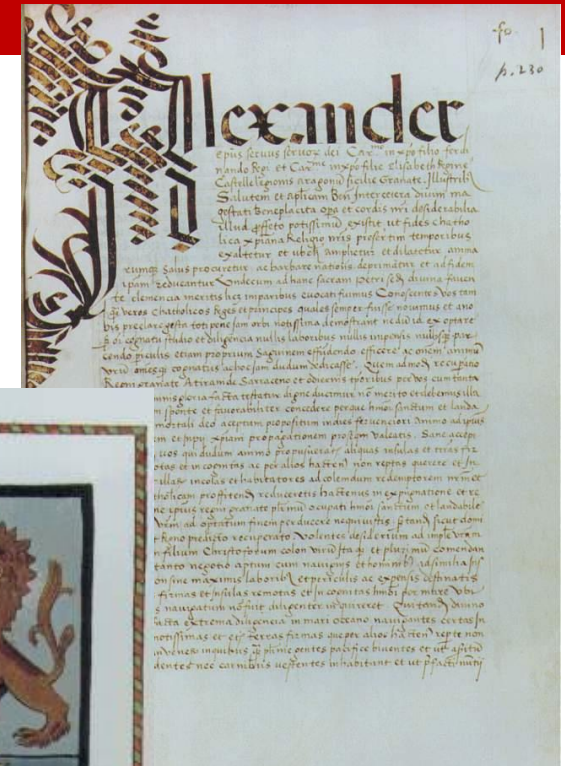 fo. 1
p. 230
Alexander
ep̄us servus servoꝝ dei Carmo in xp̄o filio ferdi
nando Regi et Carme in xp̄o filie Elisabeth Regine
Castelle legionis aragonū sicilie Granate Illustrib
Salutem et aplicam Ben Inter cetera divini ma
gestati beneplacita opa et cordis nr̄i desiderabilia
illud profecto potissimū existit ut fides catho
lica et xpiana Religio nr̄is presertim temporibus
exaltetur et ubiqꝫ amplietur et dilatetur anima
rumqꝫ salus procuretur ac barbare nationes deprimātur et ad fidem
ipam reducantur Unde cum ad hanc sacram petri sedē divina faven
te clemencia meritis licꝫ imparibus evocati fuimus Conoscentes vos tam
qꝫ veros Chatholicos Reges et principes quales semper fuisse novimus et ano
bis preclare gesta toti pene jam orbi notissima demōstrant nedū id exoptare
omni conatu studio et diligencia nullis laboribus nullis impensis nullisqꝫ par
cendo piculis etiam proprium sanguinem effundendo efficere ac omnē animū
vr̄m omesqꝫ conatus ad hoc jam dudum dedicasse Quem admodū recupacio
Regni granate A tiranide Sarraceno et odiernis tporibus per vos cum tanta
nominis gloria facta testatur digne ducimur nō merito et debemus illa
sponte et favorabiliter concedere per que hmoi sanctum et lauda
mortali deo aceptum propositum in dies ferventiori animo ad ipius
xpiani propagationem prosequi valeatis. Sane accepi
vos qui dudum animo proposuerātis aliquas insulas et tr̄as fir
otas et incognitas ac per alios hactenꝰ non reptas querere et In
illas incolas et habitatores ad colendum redemptorem nr̄m et
tholicam profitendū reduceretis hactenus in expugnatione et re
ipius regni granate plurimū ocupati hmoi sanctum et laudabile
vr̄m ad optatum finem perducere nequivistis sꝫ tandē sicut domi
t Regno predicto recuperato volentes desiderium adimplere vr̄m
filium Christoforum colon virū utiqꝫ dignū et plurimū comendan
tanto negotio aptum cum navigiis et hominibꝫ ad similia Ins
non sine maximis laboribꝫ et periculis ac expensis destinatis
firmas et insulas remotas et incognitas hmoi per mare Ubi
navigatum nō fuit diligenter inquireret Qui tandē divino
facta extrema diligencia in mari oceano navigantes certas In
remotissimas et eciā terras firmas que per alios hactenꝰ repte non
invenerūt in quibus qꝫ plurime gentes pacifice viventes et ut asseritur
dentes nec carnibus vescentes inhabitant et ut prefacti nuntii